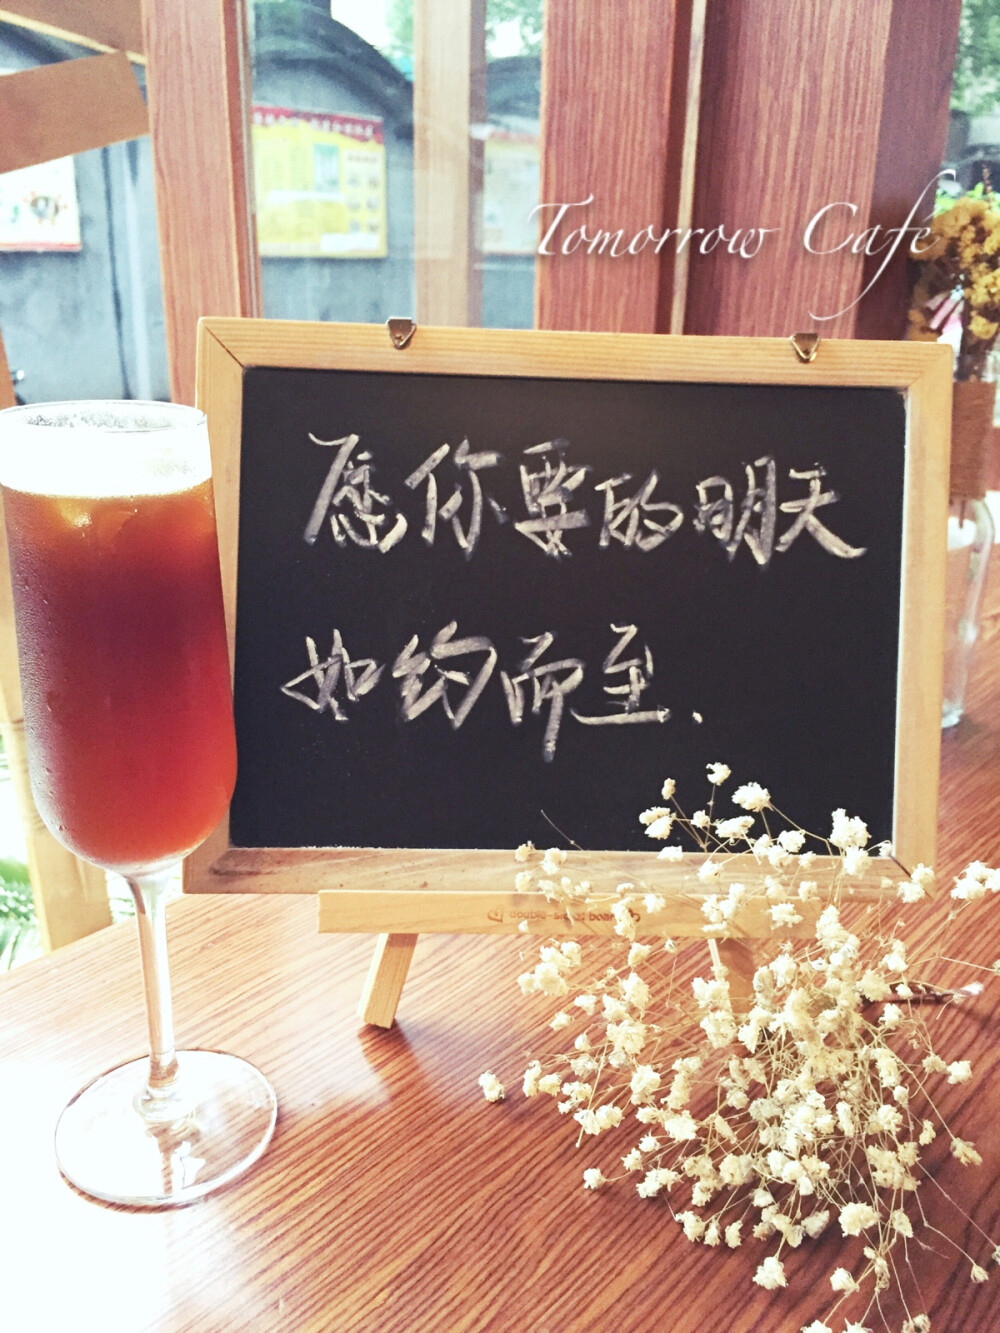 Tomorrow Café
愿你要的明天
如约而至.
double-sided board